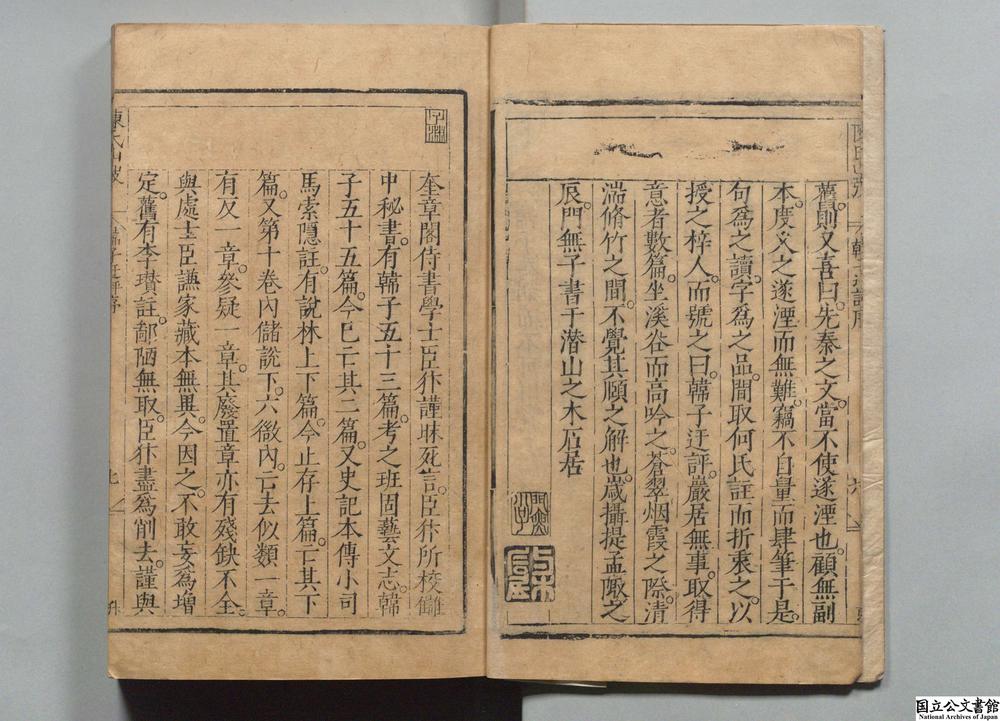 舊則又喜曰先秦之文當不使遂湮也顧無副
本度久之遂湮而無難竊不自量而肆筆于是
句爲之讀字爲之品間取何氏註而折衷之以
授之梓人而號之曰韓子迂評嚴居無事取得
意者數篇坐溪谷而高吟之蒼翠烟霞之際清
湍脩竹之間不覺其頤之解也歲攝提孟陬之
辰門無子書于潜山之木石居
奎章閣侍書學士臣㧊謹昧死言臣㧊所校讎
中秘書有韓子五十三篇考之班固藝文志韓
子五十五篇今巳亡其二篇又史記本傳小司
馬索隱註有說林上下篇今止存上篇亡其下
篇又第十卷内儲説下六微内亡去似類一章
有反一章參疑一章其廢置章亦有殘缺不全
與處士臣謙家藏本無異今因之不敢妄爲增
定舊有李瓚註鄙陋無取臣㧊盡爲削去謹與
陳氏
韓子迂評序
七
国立公文書館
National Archives of Japan